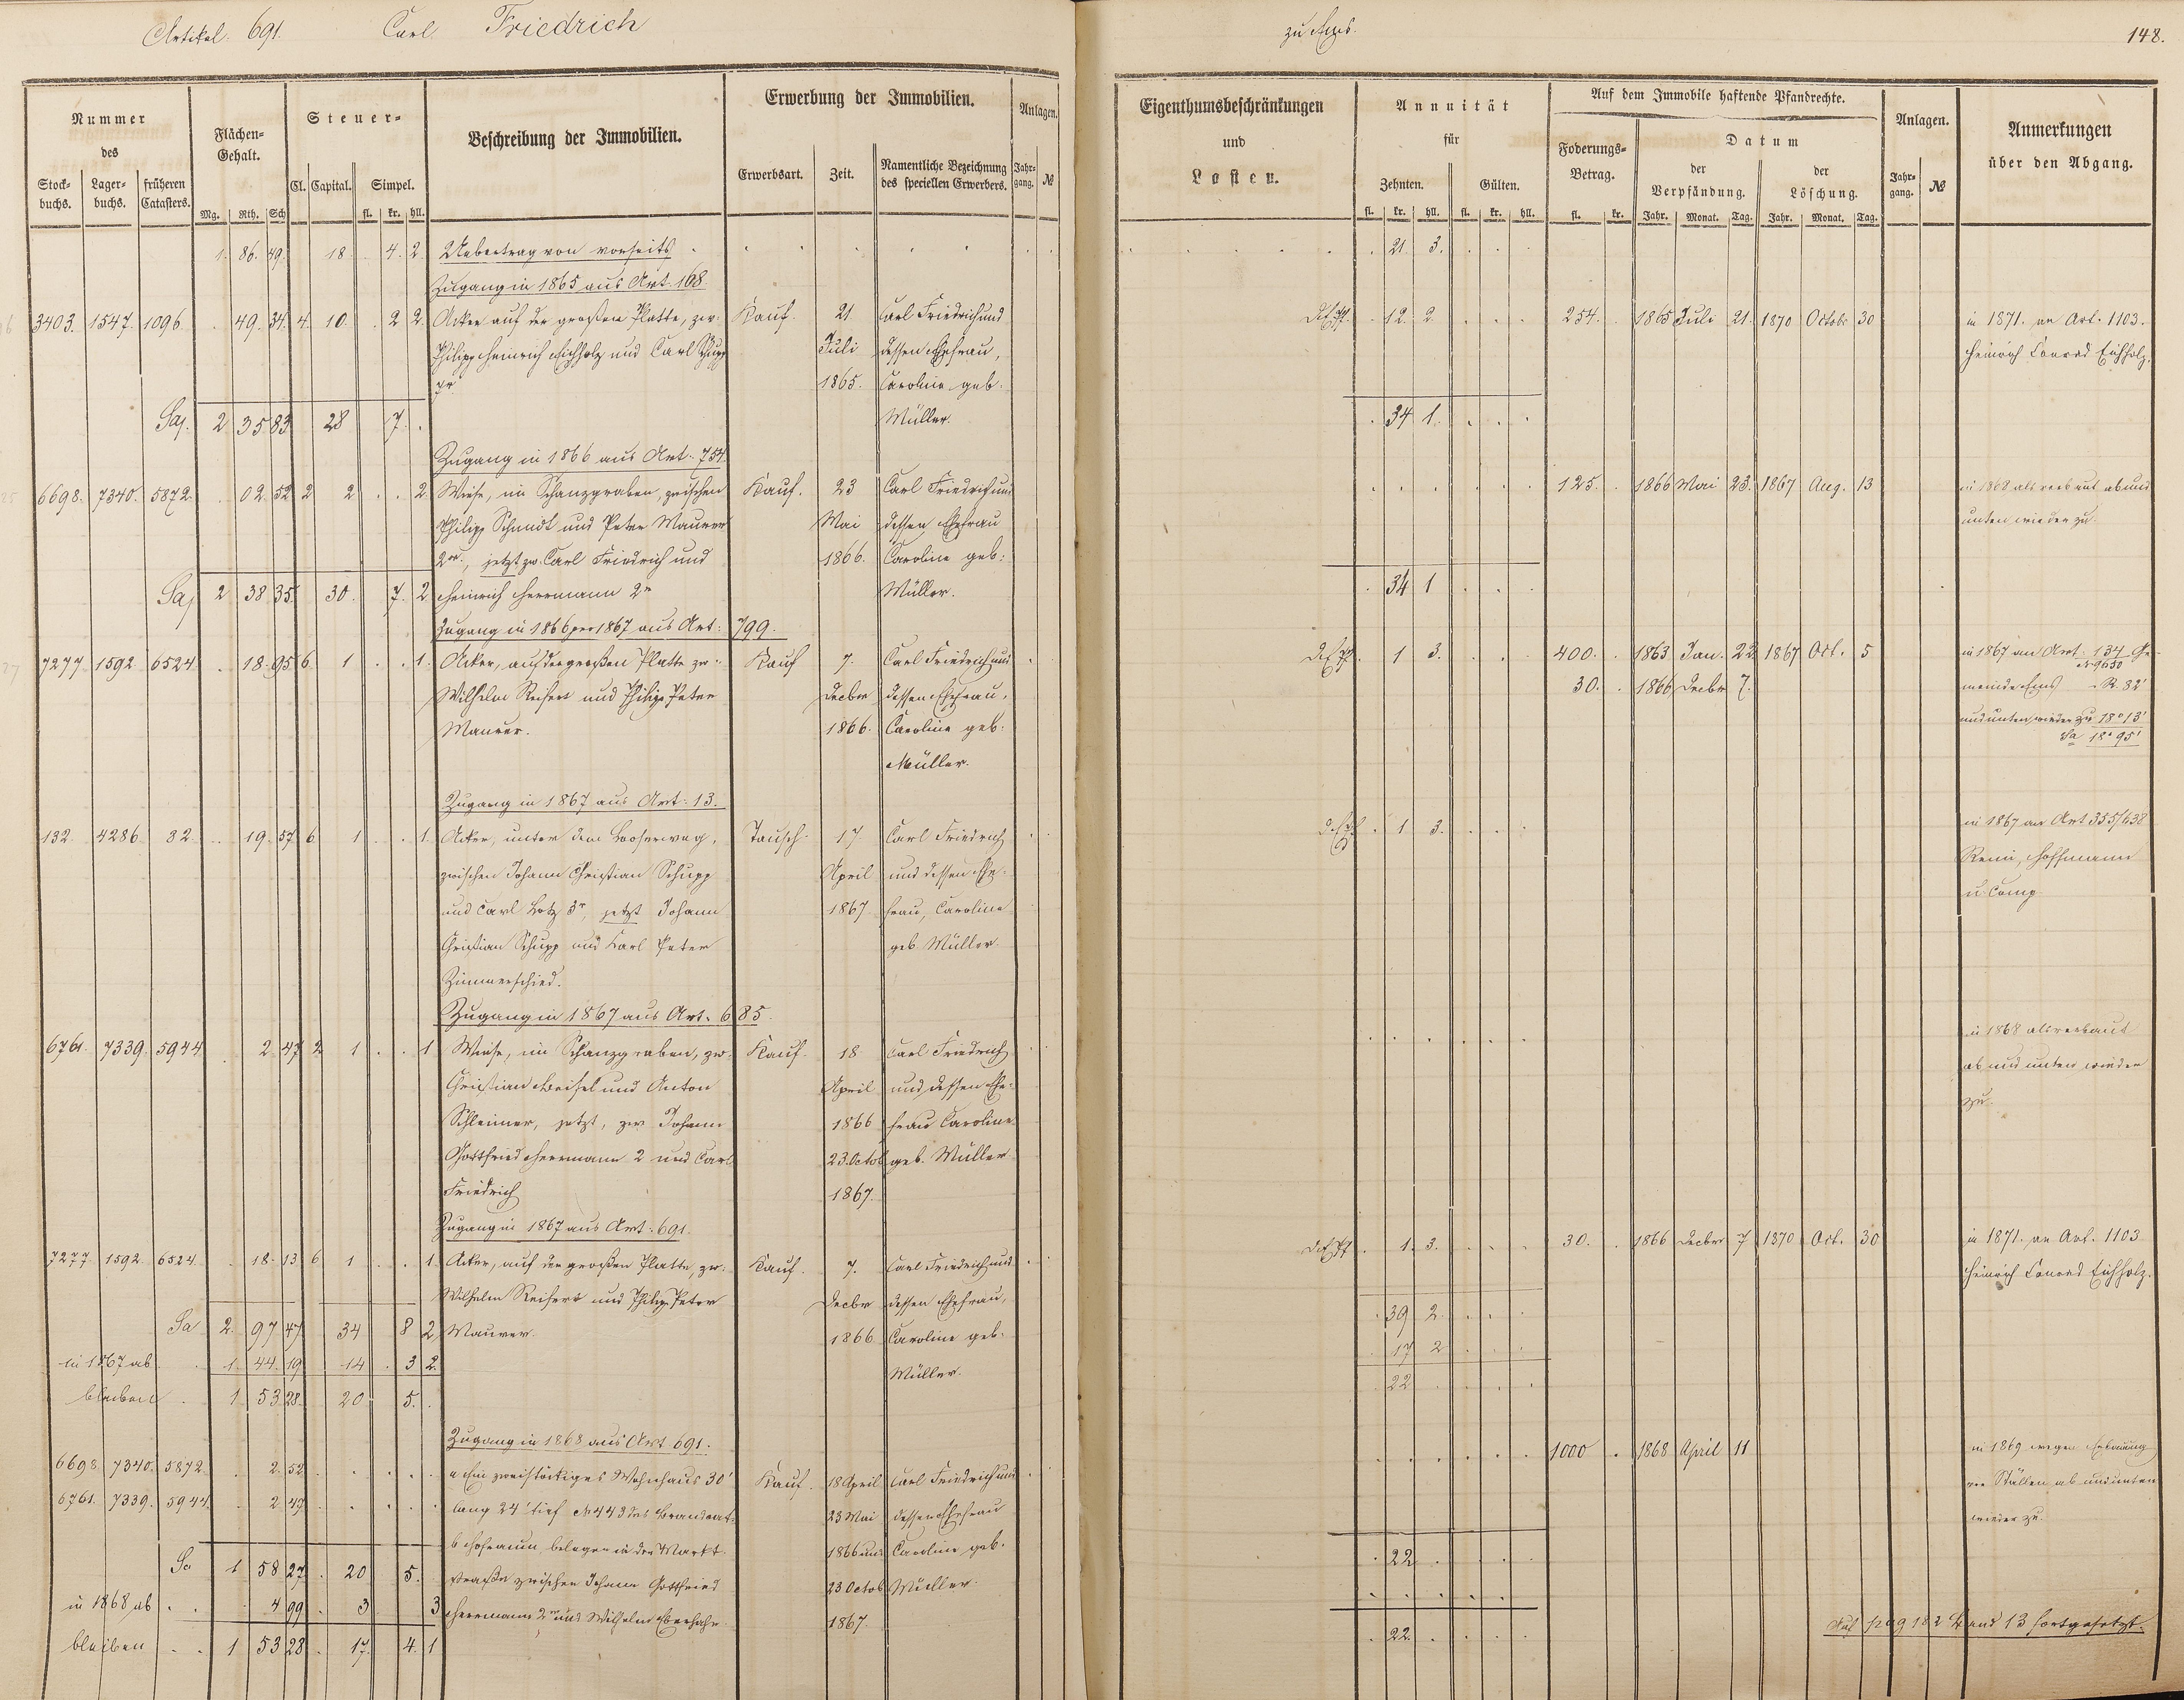 Artikel. 691. Carl Friedrich zu Ems. 148.
Nummer des
Stock-buchs. Lager-buchs. früheren Catasters.
Flächen-Gehalt.
Mg. Rth. Sch
Steuer-
Cl. Capital. Simpel.
fl. kr. hll.
Beschreibung der Immobilien.
Erwerbung der Immobilien.
Erwerbsart. Zeit. Namentliche Bezeichnung des speciellen Erwerbers.
Anlagen.
Jahr-gang. №
Eigenthumsbeschränkungen und Lasten.
Annuität für
Zehnten. Gülten.
fl. kr. hll. fl. kr. hll.
Auf dem Immobile haftende Pfandrechte.
Foderungs-Betrag.
fl. kr.
Datum
der Verpfändung. der Löschung.
Jahr. Monat. Tag. Jahr. Monat. Tag.
Anlagen.
Jahr-gang. №
Anmerkungen über den Abgang.
1. 86. 49. 18. 4. 2. Uebertrag von vorseits 21. 3.
Zugang in 1865 aus Art. 168
3403. 1547. 1096. 49. 34. 4. 10. 2 2. Acker auf der großen Platte, zw. Kauf. 21 Carl Friedrich und 12. 2 254. 1865 Juli 21. 1870 Octobr 30 in 1871. an Art. 1103.
Philipp Heinrich Eichholz und Carl Schupp Juli dessen Ehefrau, Heinrich Conrad Eichholz.
1865. Caroline geb.
Sa. 2 35 83 28 7. Müller. 34 1.
Zugang in 1866 aus Art. 754.
6698. 7340. 5872. 02. 52 2 2. 2. Wiese, im Schanzgraben, zwischen Kauf. 23 Carl Friedrich und 125. 1866 Mai 23. 1867 Aug. 13 in 1868 als verbaut ab und
Philipp Schmidt und Peter Maurer Mai dessen Ehefrau unten wieder zu.
2r, jetzt zw. Carl Friedrich und 1866. Caroline geb.
Sa. 2 38 35. 30. 7. 2 Heinrich Herrmann 2r Müller. 34 1
Zugang in 1866 per 1867 aus Art. 799.
7277 1592 6524. 18. 95 6. 1 1. Acker, auf der großen Platte zw. Kauf 7. Carl Friedrich und 1 3. 400. 1863 Jan. 22 1867 Oct. 5 in 1867 an Art. 134 Ge-
Wilhelm Reifert und Philipp Peter Decbr dessen Ehefrau, 30. 1866 Decbr 7. №9650
meinde Ems R. 82'
Maurer. 1866. Caroline geb. und unten wieder zu 18° 13'
Sa 18° 95'
Müller.
Zugang in 1867 aus Art. 13.
132. 4286 82. 19. 57. 6 1 1. Acker, unter dem Tausch. 17 Carl Friedrich 1. 3. in 1867 an Art 355/638
zwischen Johann Christian Schupp April und dessen Ehe- Remi, Hoffmann
und Carl Lotz 3r, jetzt Johann 1867. frau, Caroline u. Comp.
Christian Schupp und Karl Peter geb. Müller.
Zimmerschied.
Zugang in 1867 aus Art. 685.
6761. 7339. 5944. 2 47 2 1 1 Wiese, im Schanzgraben, zw. Kauf. 18 Carl Friedrich in 1868 als verbaut
Christian Beisel und Anton April und dessen Ehe- ab und unten wieder
Schleimer, jetzt, zw. Johann 1866 frau Caroline zu.
Gottfried Herrmann 2 und Carl 23. Octob. geb. Müller
Friedrich 1867.
Zugang in 1867 aus Art. 691.
7277 1592. 6524. 18. 13 6 1 1. Acker, auf der großen Platte, zw. Kauf. 7. Carl Friedrich und 1. 3. 30. 1866 Decbr 7 1870 Oct. 30 in 1871. an Art. 1103
Wilhelm Reifert und Philipp Peter Decbr dessen Ehefrau, Heinrich Conrad Eichholz.
Sa 2. 97 47 34 8 2 Maurer. 1866 Caroline geb. 39 2.
in 1867 ab 1. 44. 19. 14 3 2. Müller. 17 2
bleiben 1 53 28. 20 5. 22
Zugang in 1868 aus Art 691.
6698 7340. 5872. 2. 52 a Ein zweistöckiges Wohnhaus 30' Kauf. 18 April Carl Friedrich und 1000 1868 April 11 in 1869 wegen Erbauung
6761. 7339. 5944. 2 47 lang 24' tief № 443 des Brandcat. 23 Mai dessen Ehefrau von Ställen ab und unten
b Hofraum, belegen in der Markt- 1866 und Caroline geb. wieder zu.
Sa 1 58 27 20 5. straße zwischen Johann Gottfried 23 Octob Müller. 22
in 1868 ab 4 99 3 3 Herrmann 2r und Wilhelm 1867.
bleiben 1 53 28 17. 4. 1 22. Auf pag 182 Band 13 fortgesetzt.